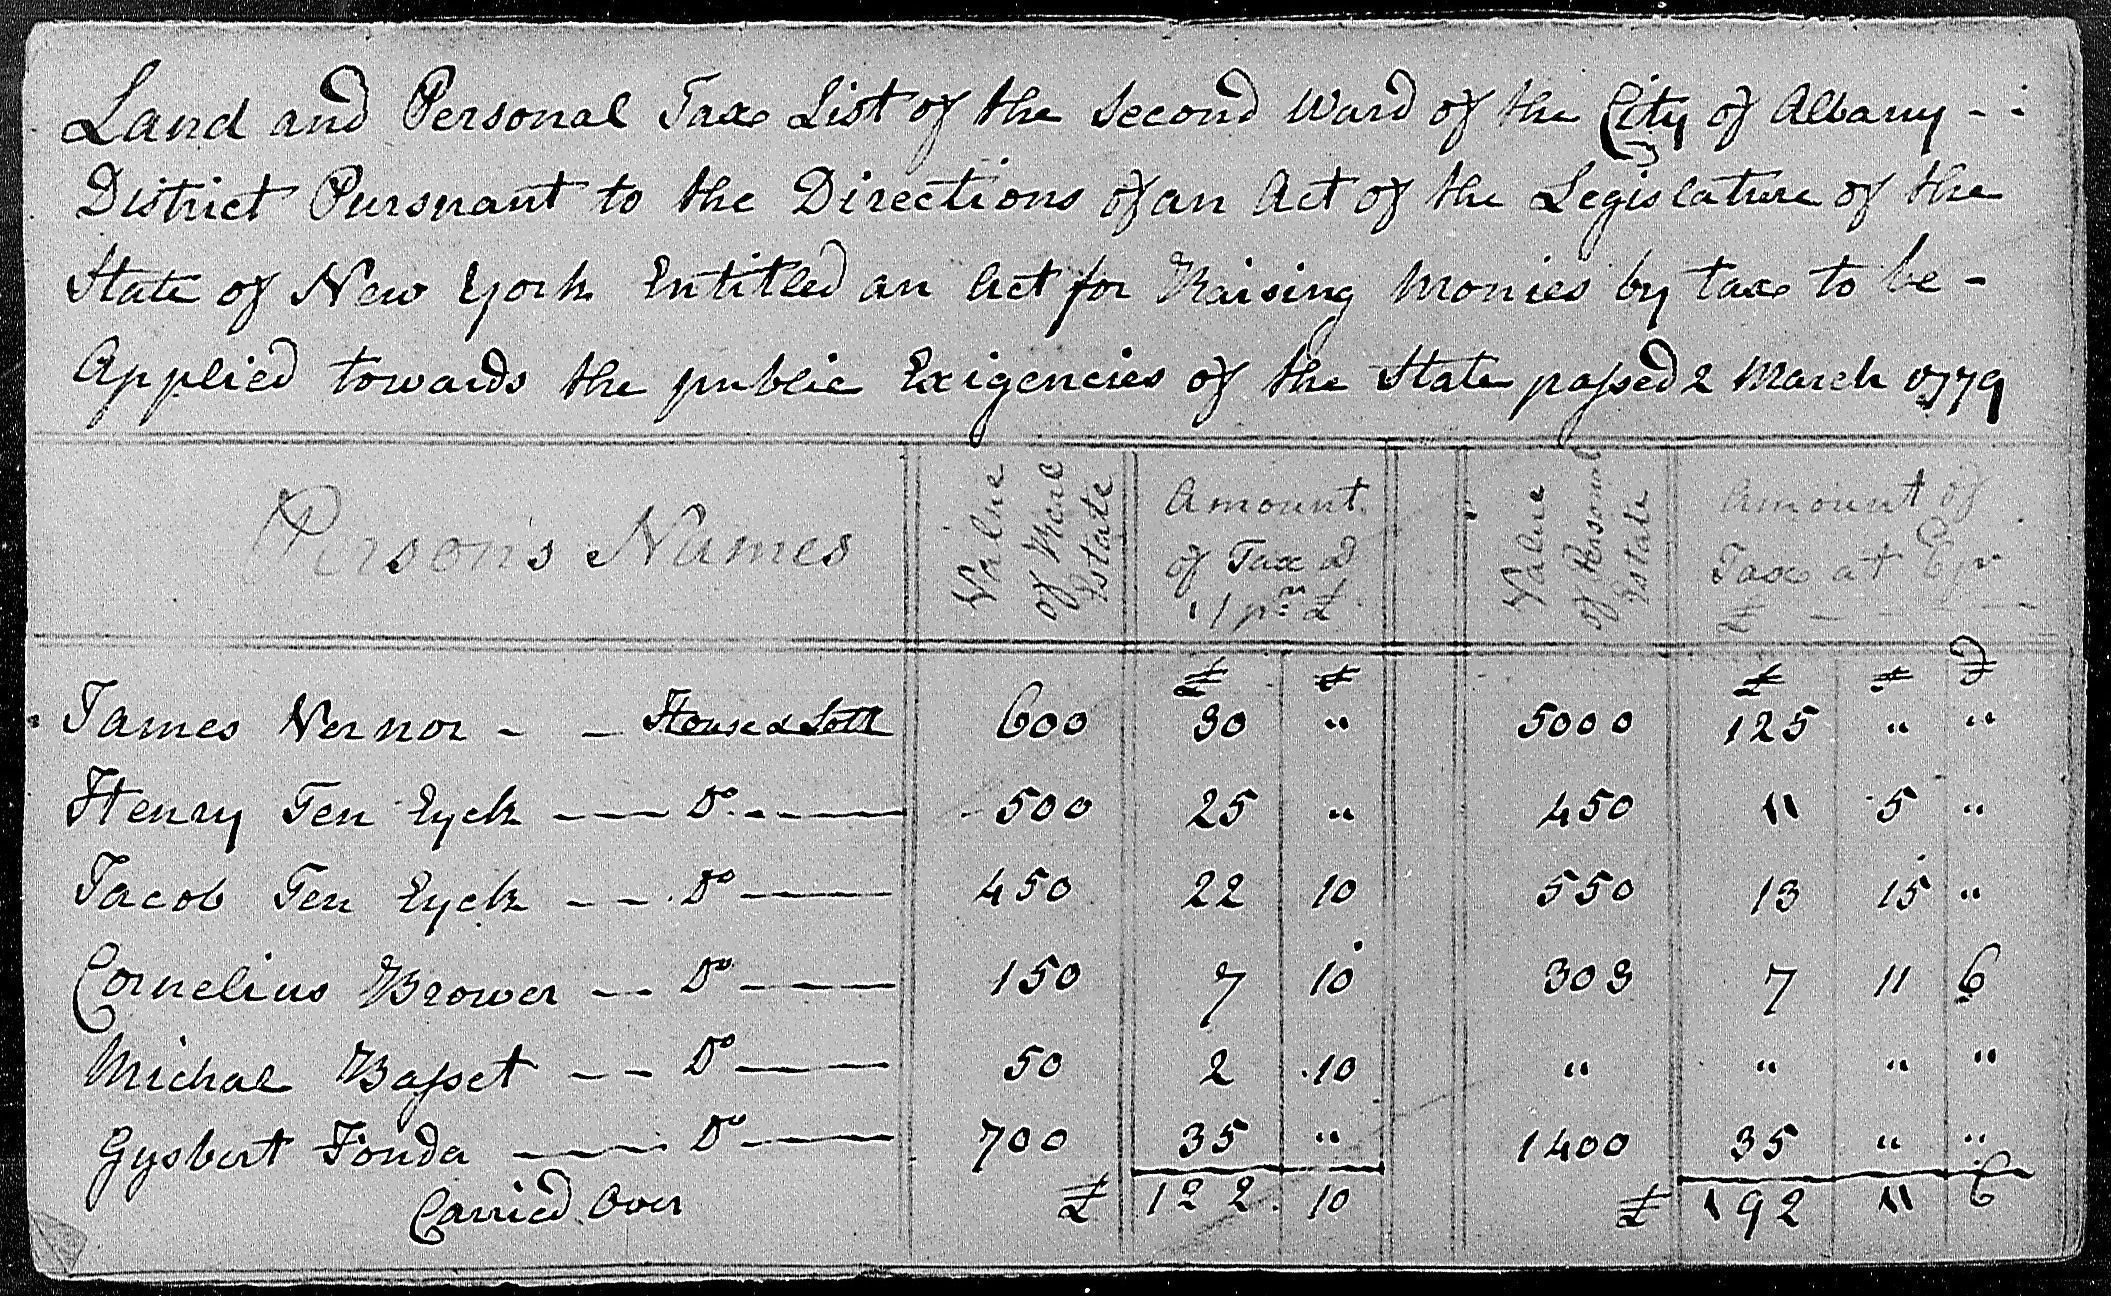 Land and Personal Tax List of the Second Ward of the City of Albany - :
District Pursuant to the Directions of an Act of the Legislature of the
State of New York Entitled an Act for Raising Monies by tax to be -
Applied towards the public Exigencies of the State passed 2 March 1779
Persons Names
Value of Real Estate
Amount of Tax a 1/ pr £
Value of Personal Estate
Amount of Tax at 6 pr £
£ s £ s d
James Vernor - - House & Lott 600 30 " 5000 125 " "
Henry Ten Eyck --- Do --- 500 25 " 450 11 5 "
Jacob Ten Eyck -- Do --- 450 22 10 550 13 15 "
Cornelius Brower -- Do --- 150 7 10 303 7 11 6
Michal Basset -- Do --- 50 2 10 " " " "
Gysbert Fonda --- Do --- 700 35 " 1400 35 " "
Carried Over £ 122 10 £ 192 11 6